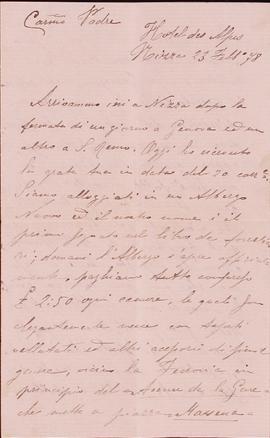 Carmo Padre
Hotel des Alpes
Nizza 23 Feb° 78
Arrivammo ieri a Nizza dopo la
fermata di un giorno a Genova ed un
altro a S. Remo. Oggi ho ricevuto
la grata sua in data del 20 corr.
Siamo alloggiati in un Albergo
Nuovo ed il nostro nome è il
primo segnato nel libro de' forestie
ri; domani l'Albergo s'apre officiale
mente, paghiamo tutto compreso
£ 2:50 ogni camera, le quali son
elegantemente messe con tapeti
vellutati ed altri accessori di simil
genere, vicino la Ferrovia in
principio del Avenue de la Gare
che mette a piazza Massena